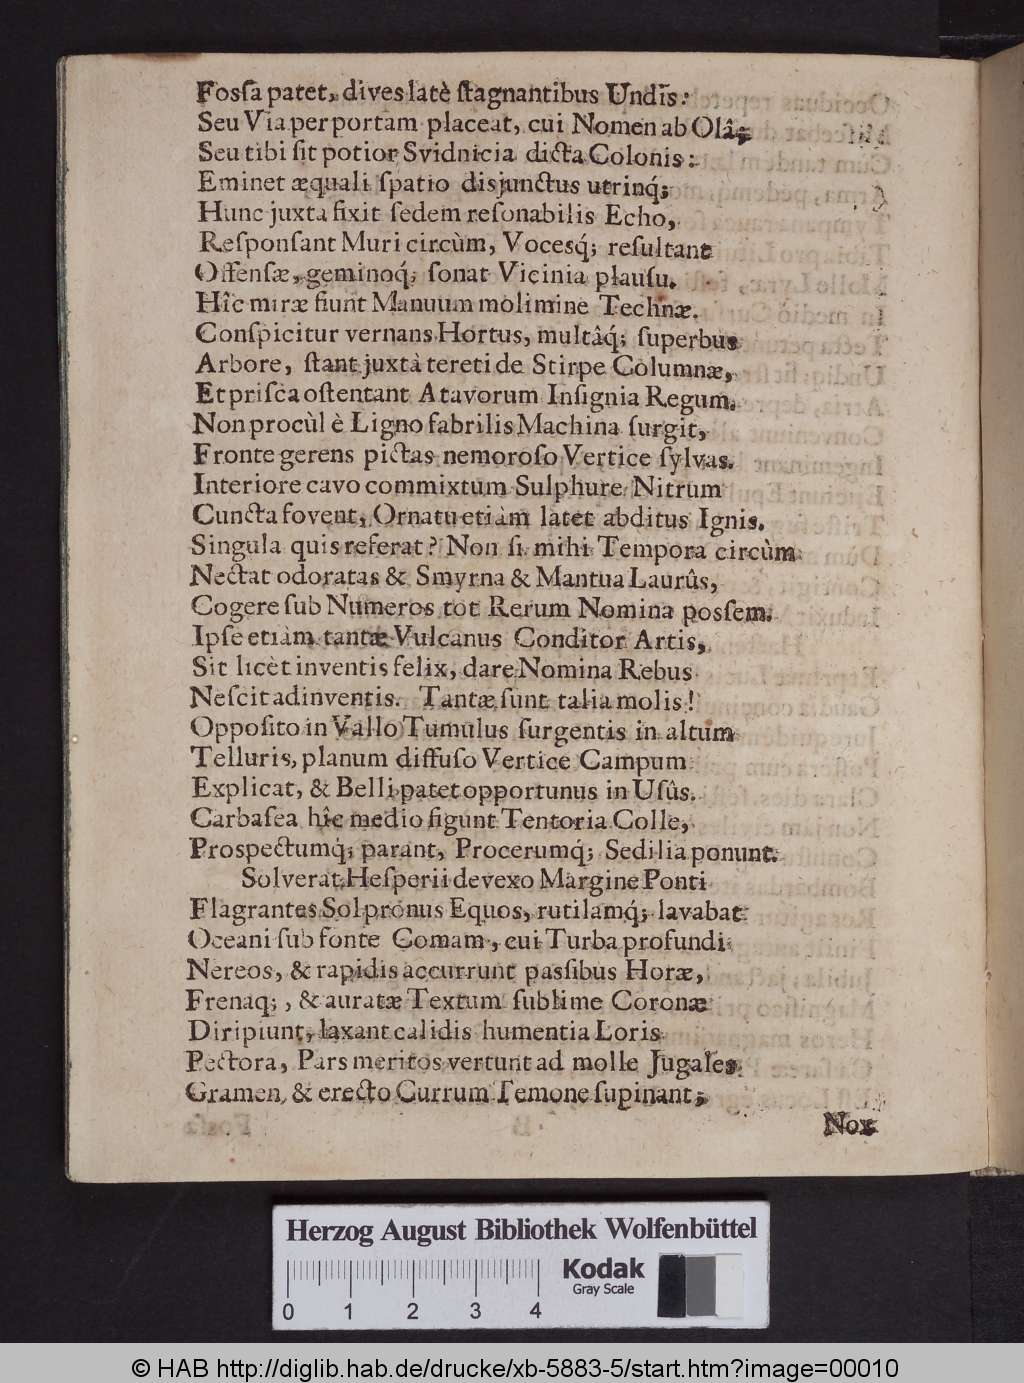 Fosſa patet, dives latè ſtagnantibus Undîs:
Seu Via per portam placeat, cui Nomen ab Olâ;
Seu tibi ſit potior Svidnicia dicta Colonis:
Eminet æquali ſpatio disjunctus utrinq́;
Hunc juxta fixit ſedem reſonabilis Echo,
Reſponſant Muri circùm, Vocesq́; reſultant
Offenſæ, geminoq́; ſonat Vicinia plauſu.
Hîc miræ fiunt Manuum molimine Technæ.
Conſpicitur vernans Hortus, multâq́; ſuperbus
Arbore, ſtant juxtà tereti de Stirpe Columnæ,
Et priſca oſtentant Atavorum Inſignia Regum.
Non procùl è Ligno fabrilis Machina ſurgit,
Fronte gerens pictas nemoroſo Vertice ſylvas.
Interiore cavo commixtum Sulphure Nitrum
Cuncta fovent, Ornatu etiàm latet abditus Ignis.
Singula quis referat? Non ſi mihi Tempora circùm
Nectat odoratas & Smyrna & Mantua Laurûs,
Cogere ſub Numeros tot Rerum Nomina posſem.
Ipſe etiàm tantæ Vulcanus Conditor Artis,
Sit licèt inventis felix, dare Nomina Rebus
Neſcit adinventis. Tantæ ſunt talia molis!
Oppoſito in Vallo Tumulus ſurgentis in altum
Telluris, planum diffuſo Vertice Campum
Explicat, & Belli patet opportunus in Uſûs.
Carbaſea hîc medio figunt Tentoria Colle,
Prospectumq́; parant, Procerumq́; Sedilia ponunt.
Solverat Heſperii devexo Margine Ponti
Flagrantes Sol prónus Equos, rutilamq́; lavabat
Oceani ſub fonte Comam, cui Turba profundi
Nereos, & rapidis accurrunt pasſibus Horæ,
Frenaq;, & auratæ Textum ſublime Coronæ
Diripiunt, laxant calidis humentia Loris
Pectora, Pars meritos vertunt ad molle Jugales
Gramen, & erecto Currum Temone ſupinant;
Nox
Herzog August Bibliothek Wolfenbüttel
0 1 2 3 4
Kodak
Gray Scale
© HAB http://diglib.hab.de/drucke/xb-5883-5/start.htm?image=00010